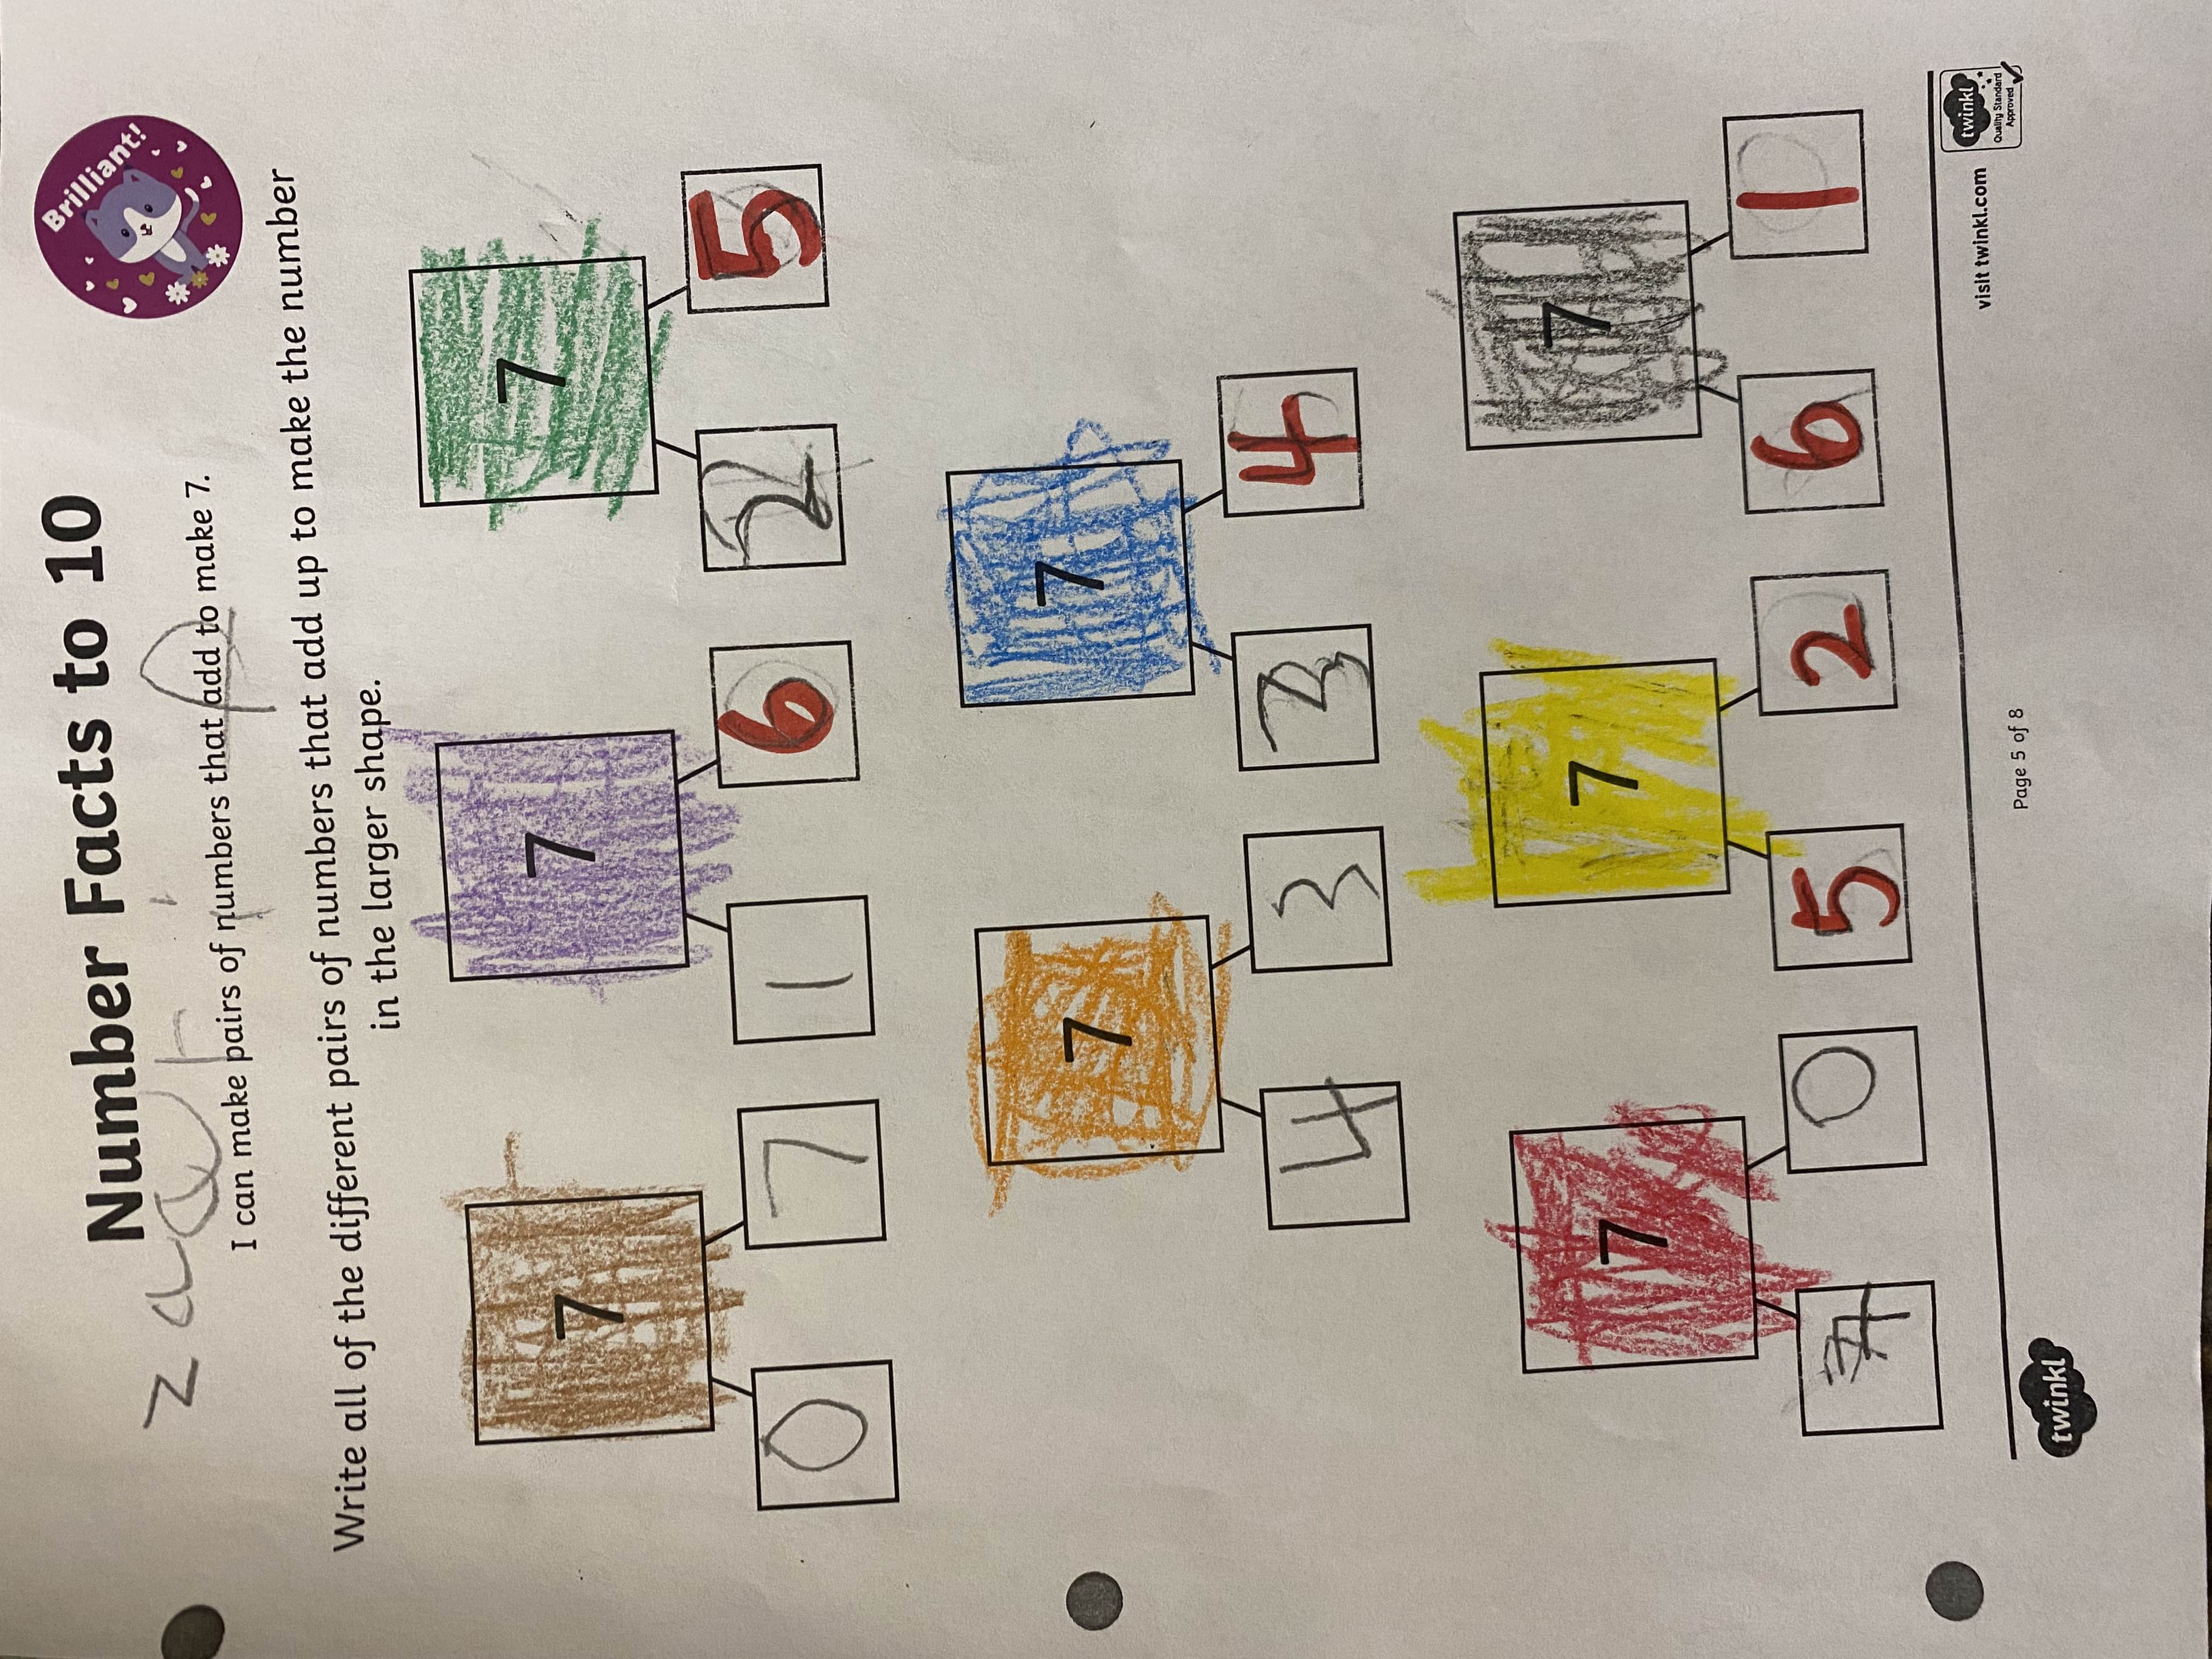 Number Facts to 10
Brilliant!
I can make pairs of numbers that add to make 7.
Write all of the different pairs of numbers that add up to make the number
in the larger shape.
7 7 7
0 7 1 6 2 5
7 7
4 3 3 4
7 7 7
7 0 5 2 6 1
visit twinkl.com
twinkl
Quality Standard
Approved
Page 5 of 8
twinkl